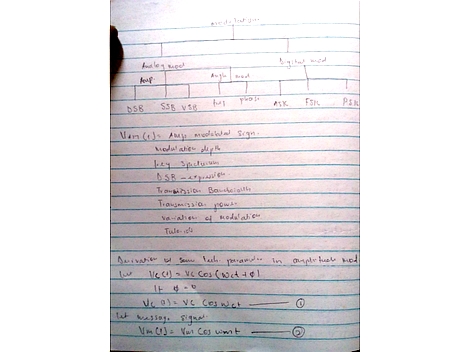 modulation
Analog mod Digital mod
Amp. Angle mod
DSB SSB VSB freq phase ASK FSK PSK
VAM(t) = Amp modulated sign.
Modulation depth
freq spectrum
DSB - expression
Transmission Bandwidth
Transmission power
variation of modulation
Tutorials
Derivation of some parameter in amplitude mod
let Vc(t) = Vc Cos(wct + φ)
If φ = 0
Vc(t) = Vc Cos wct ——— ①
let message signal
Vm(t) = Vm Cos wmt ——— ②